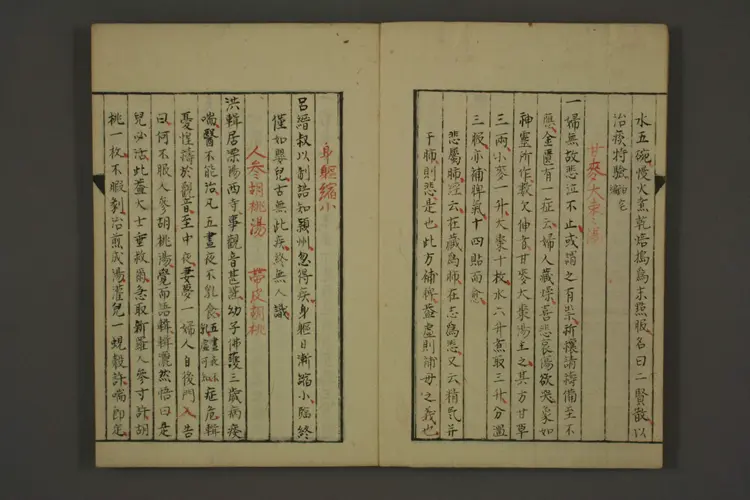 水五碗慢火煮乾焙搗為末點服名曰二賢散以
治痰特驗
甘麥大棗湯
一婦無故悲泣不止或謂之有祟祈禳請禱備至不
應金匱有一症云婦人藏燥喜悲哀傷欲哭象如
神靈所作數欠伸者甘麥大棗湯主之其方甘草
三兩小麥一升大棗十枚水六升煮取三升分溫
三服亦補脾氣十四貼而愈
悲屬肺經云在藏為肺在志為悲又云精氣并
于肺則悲是也此方補脾益虛則補母之義也
身軀縮小
呂縉叔以制誥知潁州忽得疾身軀日漸縮小臨終
僅如嬰兒古無此疾終無人識
人參胡桃湯 帶皮胡桃
洪輯居溧陽西寺事觀音甚謹幼子佛護三歲病痰
喘醫不能治凡五晝夜不乳食症危輯
憂惶禱於觀音至中夜妻夢一婦人自後門入告
曰何不服人參胡桃湯覺而語輯輯灑然悟曰是
兒必活此蓋大士垂救爾急取新羅人參寸許胡
桃一枚不暇剝治煎成湯灌兒一蜆殼許喘即定